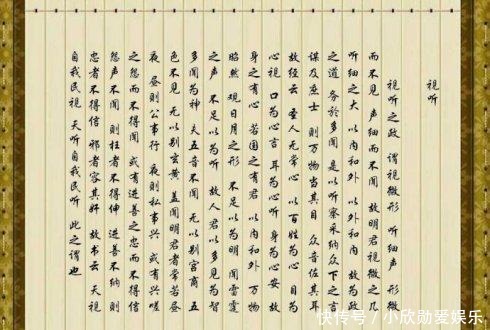 視听
視听之政 谓視微形 听细声 形微
而不見 声细而不闻 故明君視微之几
听细之大 以内和外 以外和内 故为政
之道 务於多闻 是以听察采纳众下之言
谋及庶士 则万物当其目 众音佐其耳
故经云 圣人无常心 以百姓为心 目为
心視 口为心言 耳为心听 身为心安 故
身之有心 若国之有君 以内和外 万物
昭然 观日月之形 不足以为明 闻雷霆
之声 不足以为听 故人君以多見为智
多闻为神 夫五音不闻 无以别宫商 五
色不見 无以别玄黄 盖闻明君者常若昼
夜 昼则公事行 夜则私事兴 或有嗟
之怨而不得闻 或有进善之忠而不得信
怨声不闻 则枉者不得伸 进善不纳 则
忠者不得信 邪者容其奸 故书云 天視
自我民視 天听自我民听 此之谓也
快传号 / 小欣勋爱娱乐